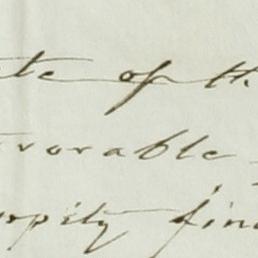 te of th
vorable
rpity fin